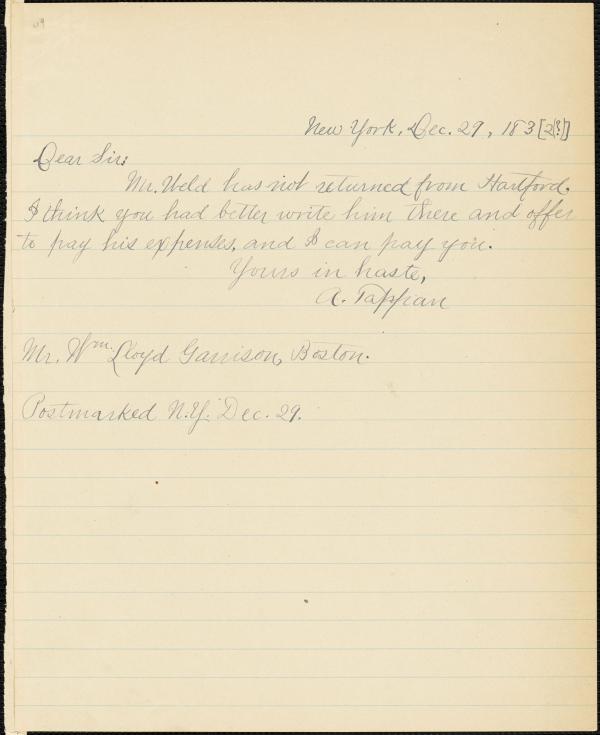 New York, Dec. 29, 183[2?]
Dear Sir:
Mr. Weld has not returned from Hartford.
I think you had better write him there and offer
to pay his expenses, and I can pay you.
Yours in haste,
A. Tappan
Mr. Wm. Lloyd Garrison, Boston.
Postmarked N.Y. Dec. 29.